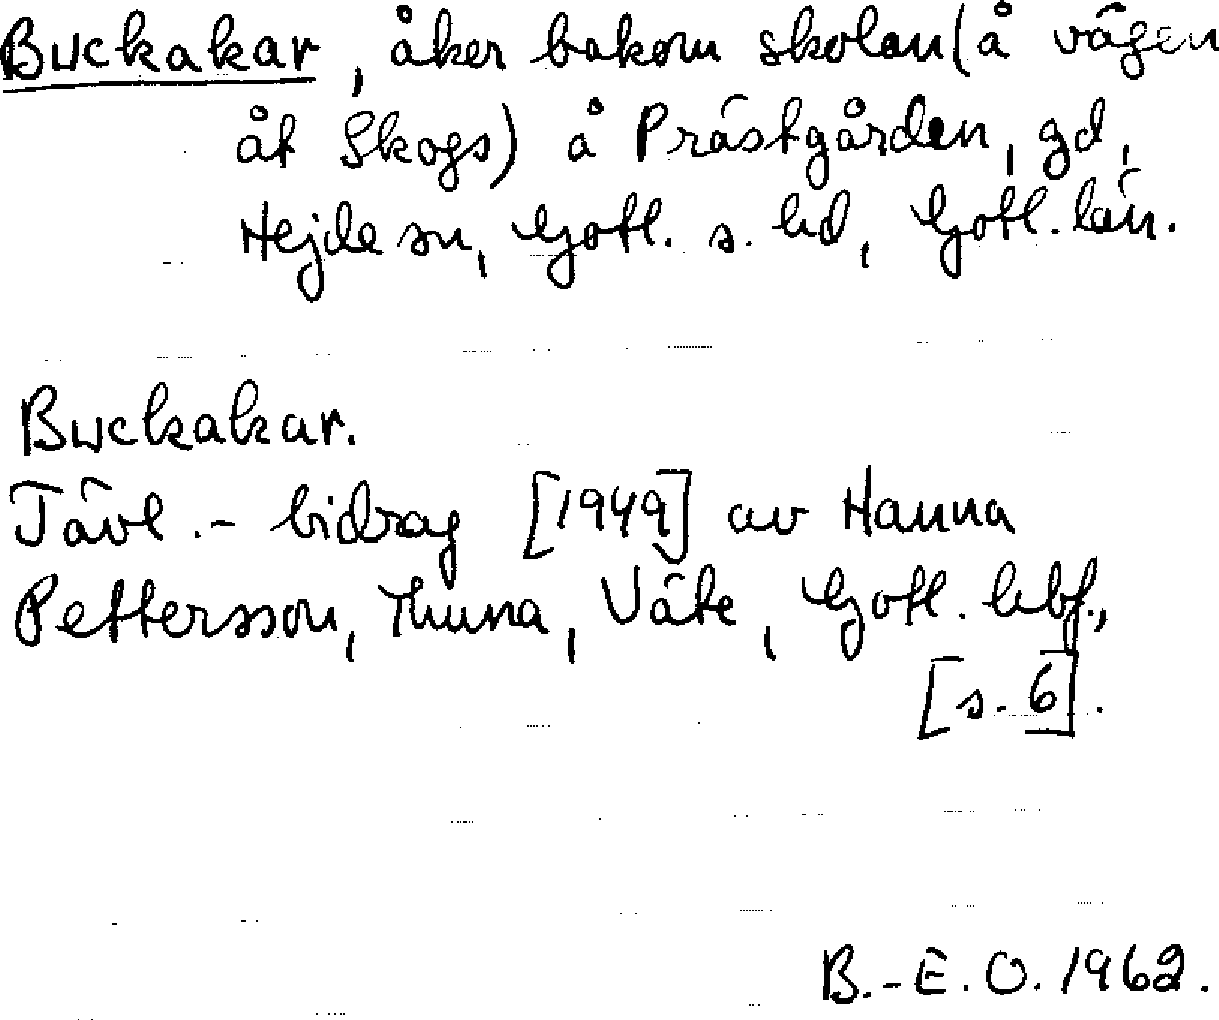 Buckakar, åker bakom skolan (å vägen
åt Skogs) å Prästgården, gd,
Hejde sn, Gotl. s. hd, Gotl. län.
Buckakar.
Tävl.-bidrag [1949] av Hanna
Pettersson, Thuna, Väte, Gotl. hbf.,
[s. 6].
B.-E. O. 1962.